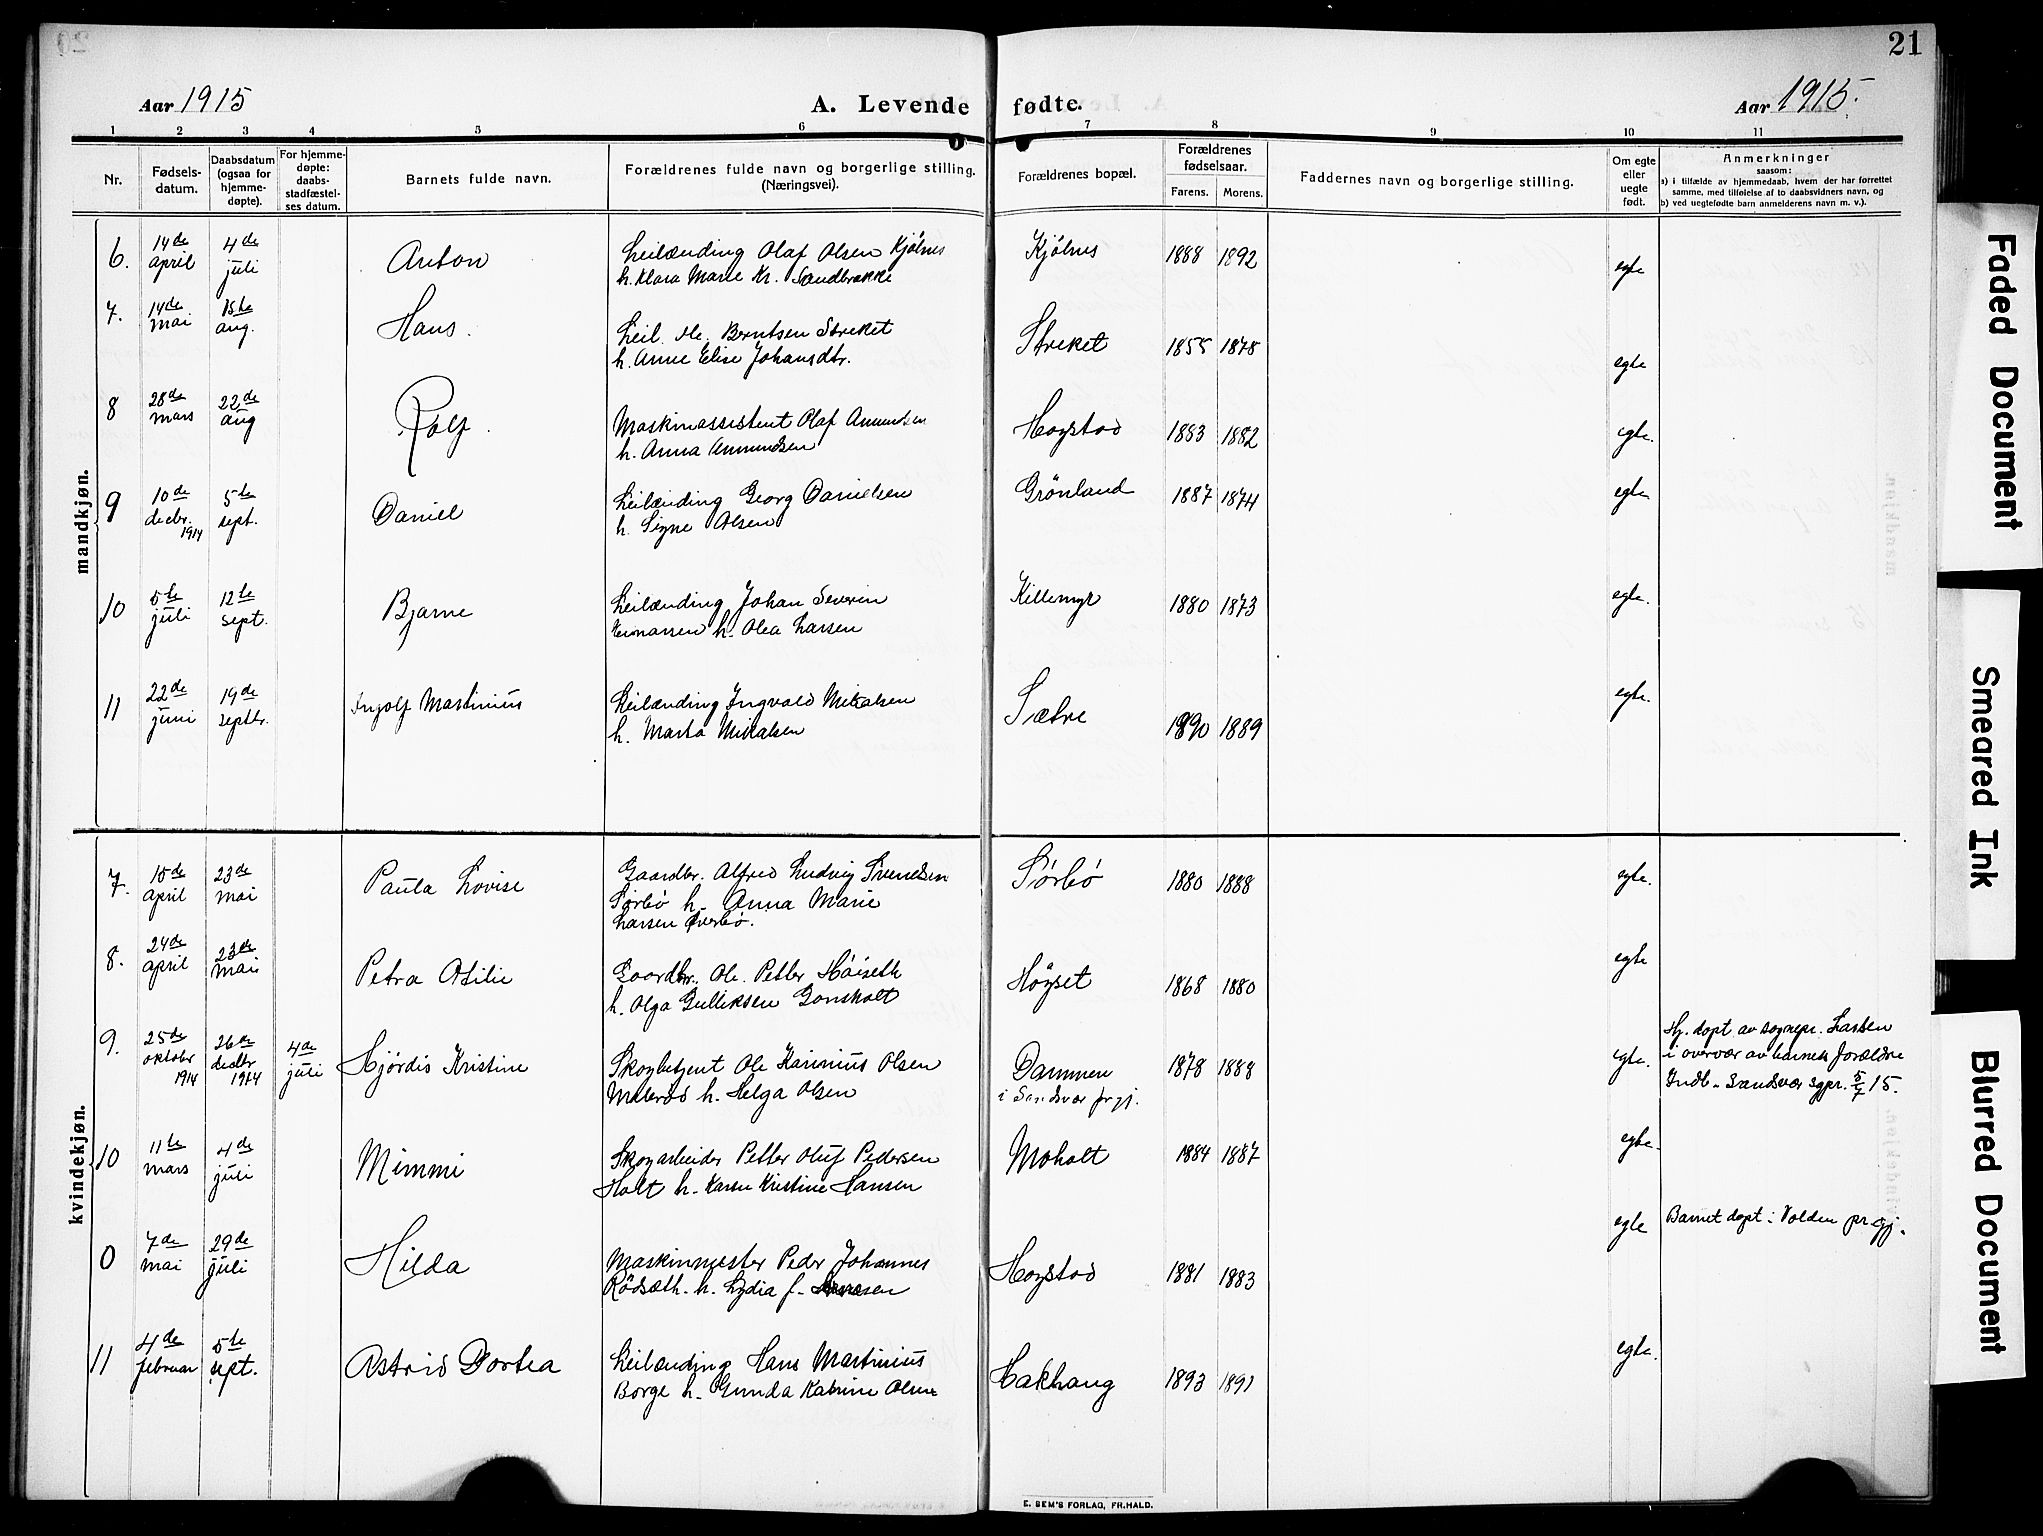 20
21
Aar 1915
A. Levende fødte.
Aar 1915.
1 2 3 4 5 6 7 8 9 10 11
Nr.
Fødsels-
datum.
Daabsdatum
(ogsaa for
hjemme-
døpte).
For hjemme-
døpte:
daabs-
stadfæstel-
ses datum.
Barnets fulde navn.
Forældrenes fulde navn og borgerlige stilling.
(Næringsvei).
Forældrenes bopæl.
Forældrenes
fødselsaar.
Farens. Morens.
Faddernes navn og borgerlige stilling.
Om egte
eller
uegte
født.
Anmerkninger
saasom:
a) i tilfælde av hjemmedaab, hvem der har forrettet
samme, med tilføielse af to daabsvidners navn, og
b) ved uegtefødte barn anmelderens navn m. v.).
mandkjøn.
6. 14de april 4de juli Anton Leilænding Olaf Olsen Kjölnes Kjölnes 1888 1892 egte
h. Klara Marie Kr. Sandbrække
7. 14de mai 15de aug. Hans. Leil. Ole. Berntsen Streket Streket 1855 1878 egte
h. Anne Elise Johansdtr.
8 28de mars 22de aug Rolf. Maskinassistent Olaf Amundsen Hogstad 1883 1882 egte.
h. Anna Amundsen
9 10de decbr. 1914 5te sept. Daniel Leilænding Georg Danielsen Grönland 1887 1874 egte
h. Signe Olsen
10 5te juli 12te sept. Bjarne Leilænding Johan Severin Killemyr 1880 1873 egte.
h. Olea Larsen
11 22de juni 19de septbr. Ingolf Martinius Leilænding Ingvald Mikalsen Sætre 1890 1889 egte.
h. Marta Mikalsen
kvindekjøn.
7. 15de april 23de mai Paula Lovise Gaardbr. Alfred Ludvig Svendsen Sørbó 1880 1888 egte.
Sørbó h. Anna Marie
Larsen Överbö.
8. 24de april 23de mai Petra Otilie Gaardbr. Ole. Petter Höiseth Höyset 1868 1880 egte
h. Olga Gulliksen Gonsholt
9. 25de oktober 1914 26de decbr 1914 4de juli Hjördis Kristine Skogbetjent Ole Karinius Olsen Dammen 1878 1888 egte.
h. Helga Olsen i Sandsvær prgj.
Hj. døpt av sognepr. Larsen
i overvær av barnets forældre
Indb. Sandsvær sgpr. 5/7 15.
10 11te mars 4de juli Mimmi Skogarbeider Petter Oluf Pedersen Moholt 1884 1887 egte.
Holt h. Karen Kristine Hansen
0 7de mai 29de juli Hilda Maskinmester Peder Johannes Hogstad 1881 1883 egte Barnet døpt i Volden prgj.
Rödsæth. h. Lydia f.
11 4de februar 5te sept. Astrid Dortea Leilænding Hans Martinius Hakhaug 1893 1891 egte.
Borge h. Gunda Katrine Olsen
E. SEM'S FORLAG, FR.HALD.
Faded Document
Smeared Ink
Blurred Document